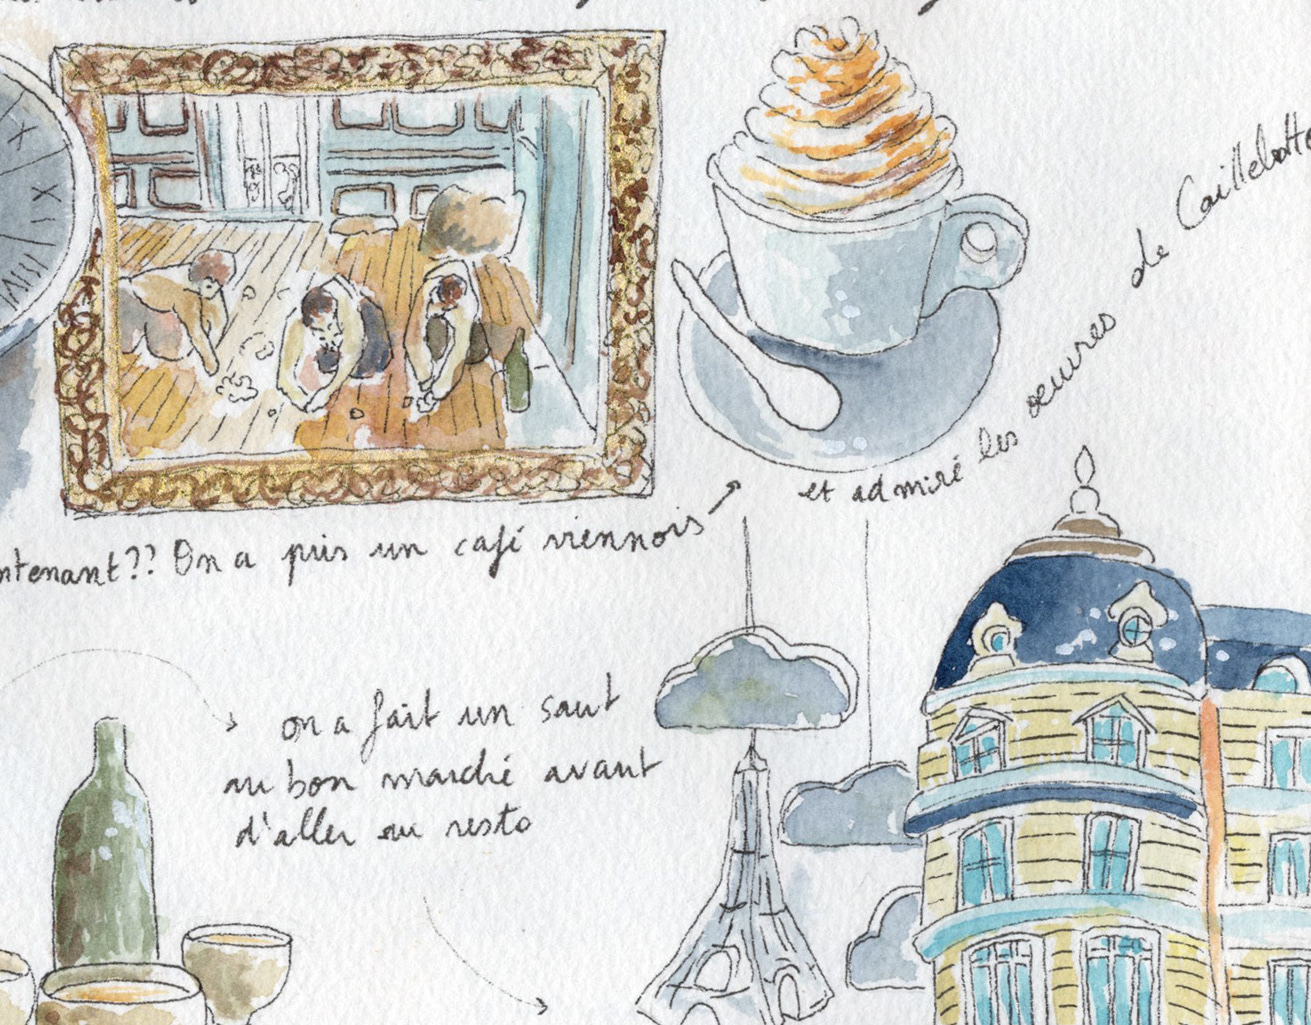 ntenant?? On a pris un café viennois
et admiré les oeuvres de Caillebotte
on a fait un saut
au bon marché avant
d'aller au resto